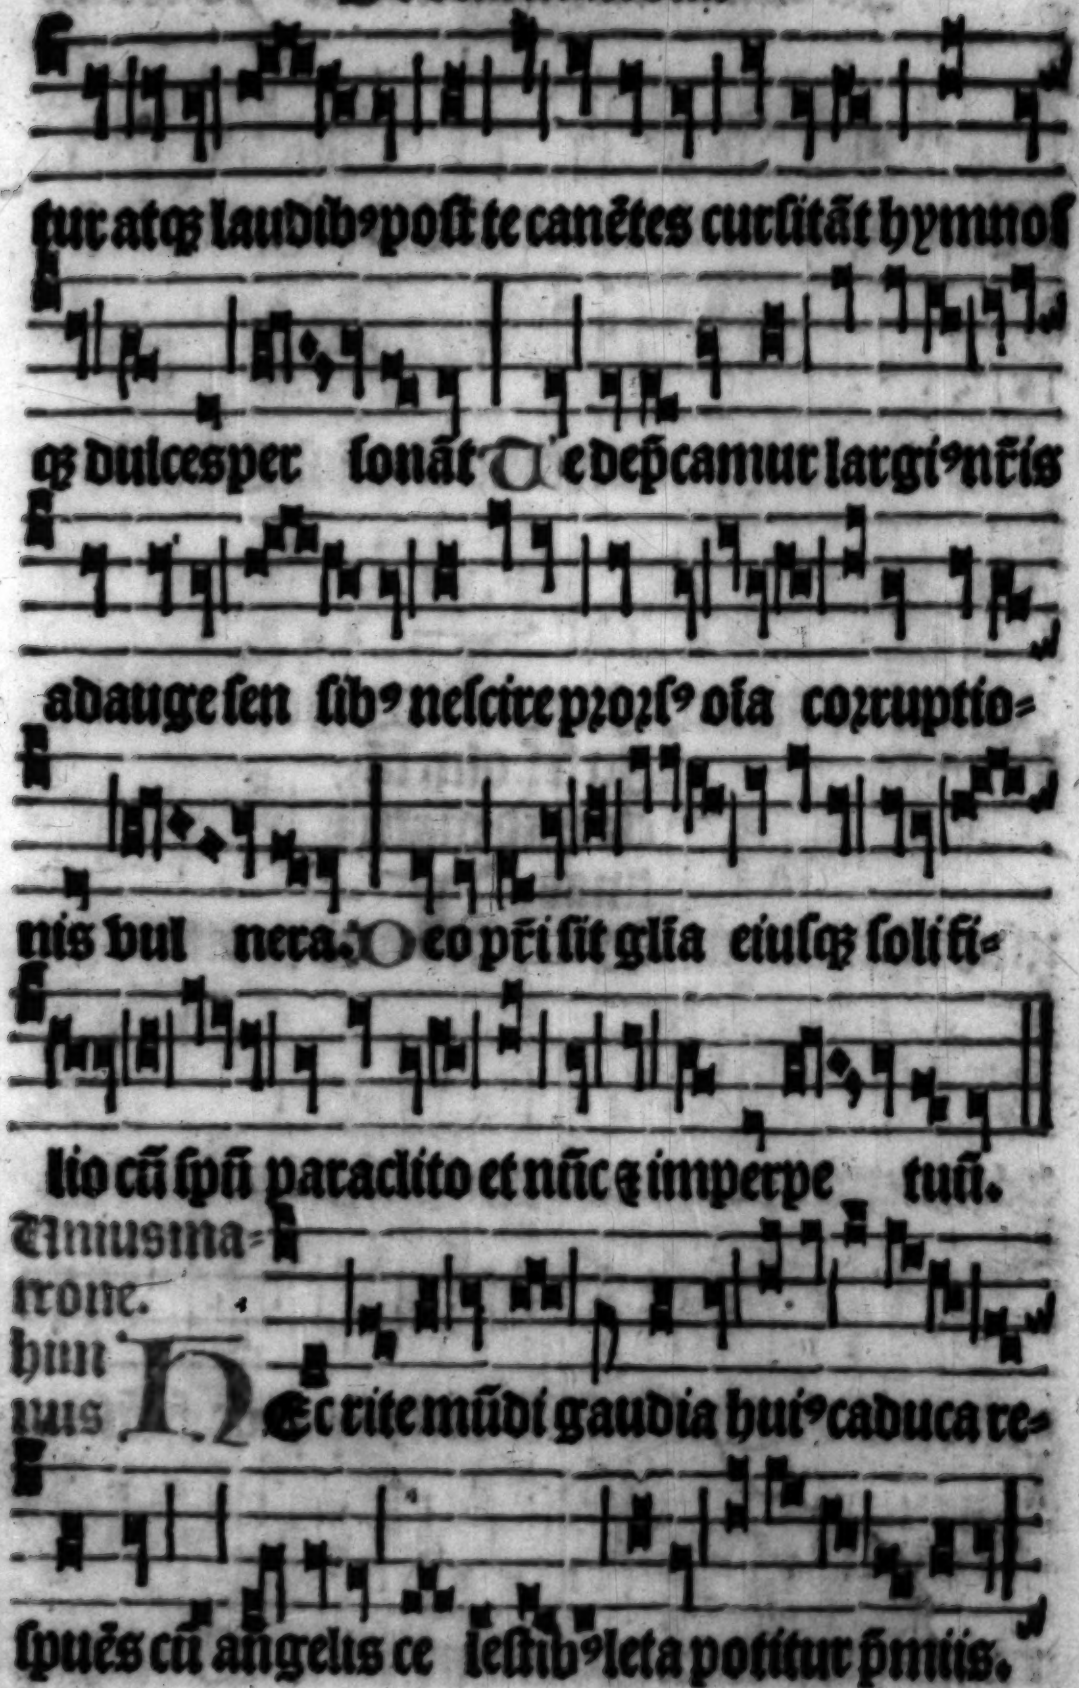 tur atqꝫ laudibꝰ post te canētes cursitāt hymnos
qꝫ dulces per sonāt Te dep̄camur largiꝰ nr̄is
adauge sen sibꝰ nescire prorsꝰ oīa corruptio⸗
nis vul nera. Deo pr̄i sit glīa eiusqꝫ soli fi⸗
lio cū spū paraclito et nūc ⁊ imperpe tuū.
Unius ma⸗
trone.
him
nus
HEc rite mūdi gaudia huiꝰ caduca re⸗
spuēs cū angelis ce lestibꝰ leta potitur p̄miis.